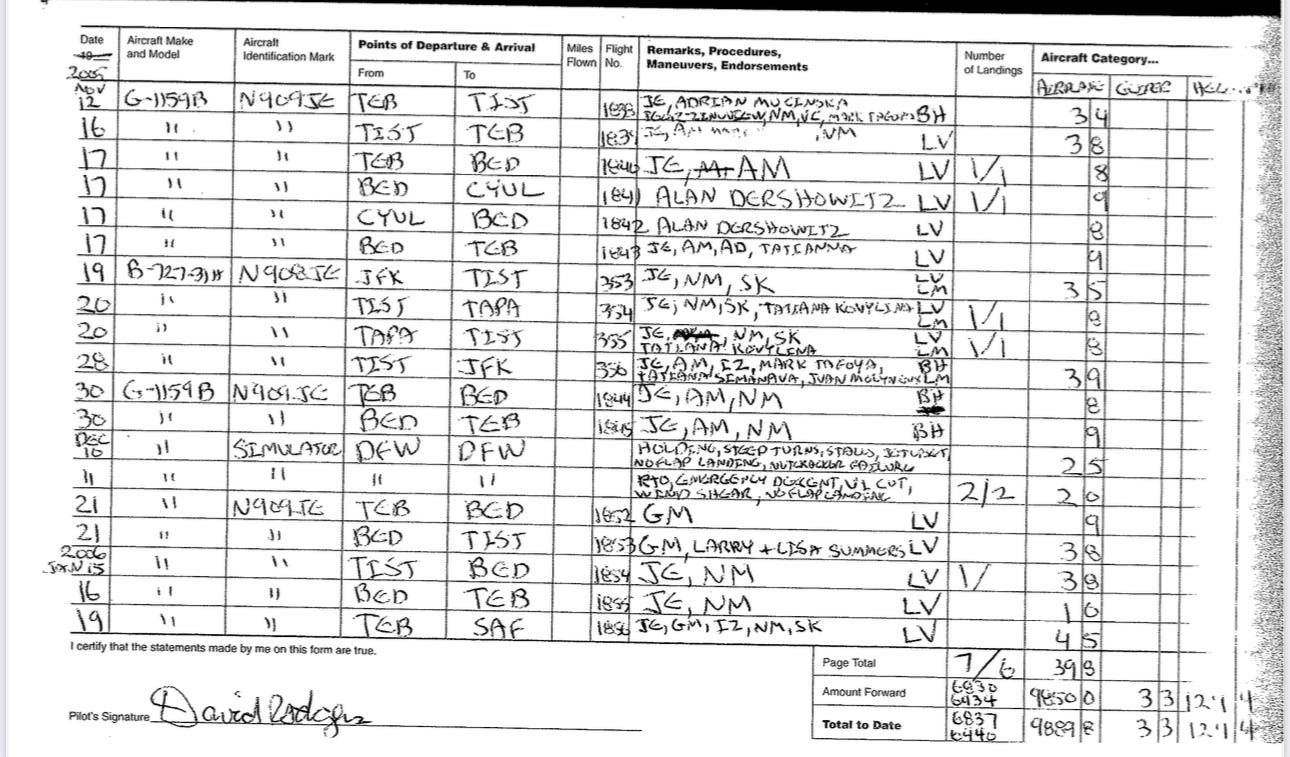 Date Aircraft Make and Model Aircraft Identification Mark Points of Departure & Arrival Miles Flown Flight No. Remarks, Procedures, Maneuvers, Endorsements Number of Landings Aircraft Category...
19 2005 From To AIRPLANE GLIDER
NOV 12 G-1159B N909JE TEB TIST 1838 JE, ADRIAN MUCINSKA NM, VC, BH 3 4
16 " " TIST TEB 1839 JE, AM NM LV 3 8
17 " " TEB BED 1840 JE, AM LV 1/1 8
17 " " BED CYUL 1841 ALAN DERSHOWITZ LV 1/1 9
17 " " CYUL BED 1842 ALAN DERSHOWITZ LV 8
17 " " BED TEB 1843 JE, AM, AD, TATIANNA LV 9
19 B-727-31H N908JE JFK TIST 353 JE, NM, SK LV LM 3 5
20 " " TIST TAPA 354 JE, NM, SK, TATIANA KOVYLINA LV LM 1/1 8
20 " " TAPA TIST 355 JE, NM, SK TATIANA KOVYLINA LV LM 1/1 8
28 " " TIST JFK 356 JE, AM, IZ, MARK TAFOYA, TATIANA SIMANAVA, JUAN MOLYNEUX BH LM 3 9
30 G-1159B N909JE TEB BED 1844 JE, AM, NM BH 8
30 " " BED TEB 1845 JE, AM, NM BH 9
DEC 10 " SIMULATOR DFW DFW HOLDING, STEEP TURNS, STALLS, NO FLAP LANDING, NUTCRACKER FAILURE 2 5
11 " " " " RTO, EMERGENCY DESCENT, V1 CUT, WIND SHEAR, NO FLAP LANDING 2/2 2 0
21 " N909JE TEB BED 1852 GM LV 9
21 " " BED TIST 1853 GM, LARRY + LISA SUMMERS LV 3 8
2006 JAN 15 " " TIST BED 1854 JE, NM LV 1/ 3 8
16 " " BED TEB 1855 JE, NM LV 1 0
19 " " TEB SAF 1856 JE, GM, IZ, NM, SK LV 4 5
I certify that the statements made by me on this form are true.
Page Total 7/6 39 8
Amount Forward 6830 6434 9850 0 3 3 12 4
Pilot's Signature David Rodgers
Total to Date 6837 6440 9889 8 3 3 12 4